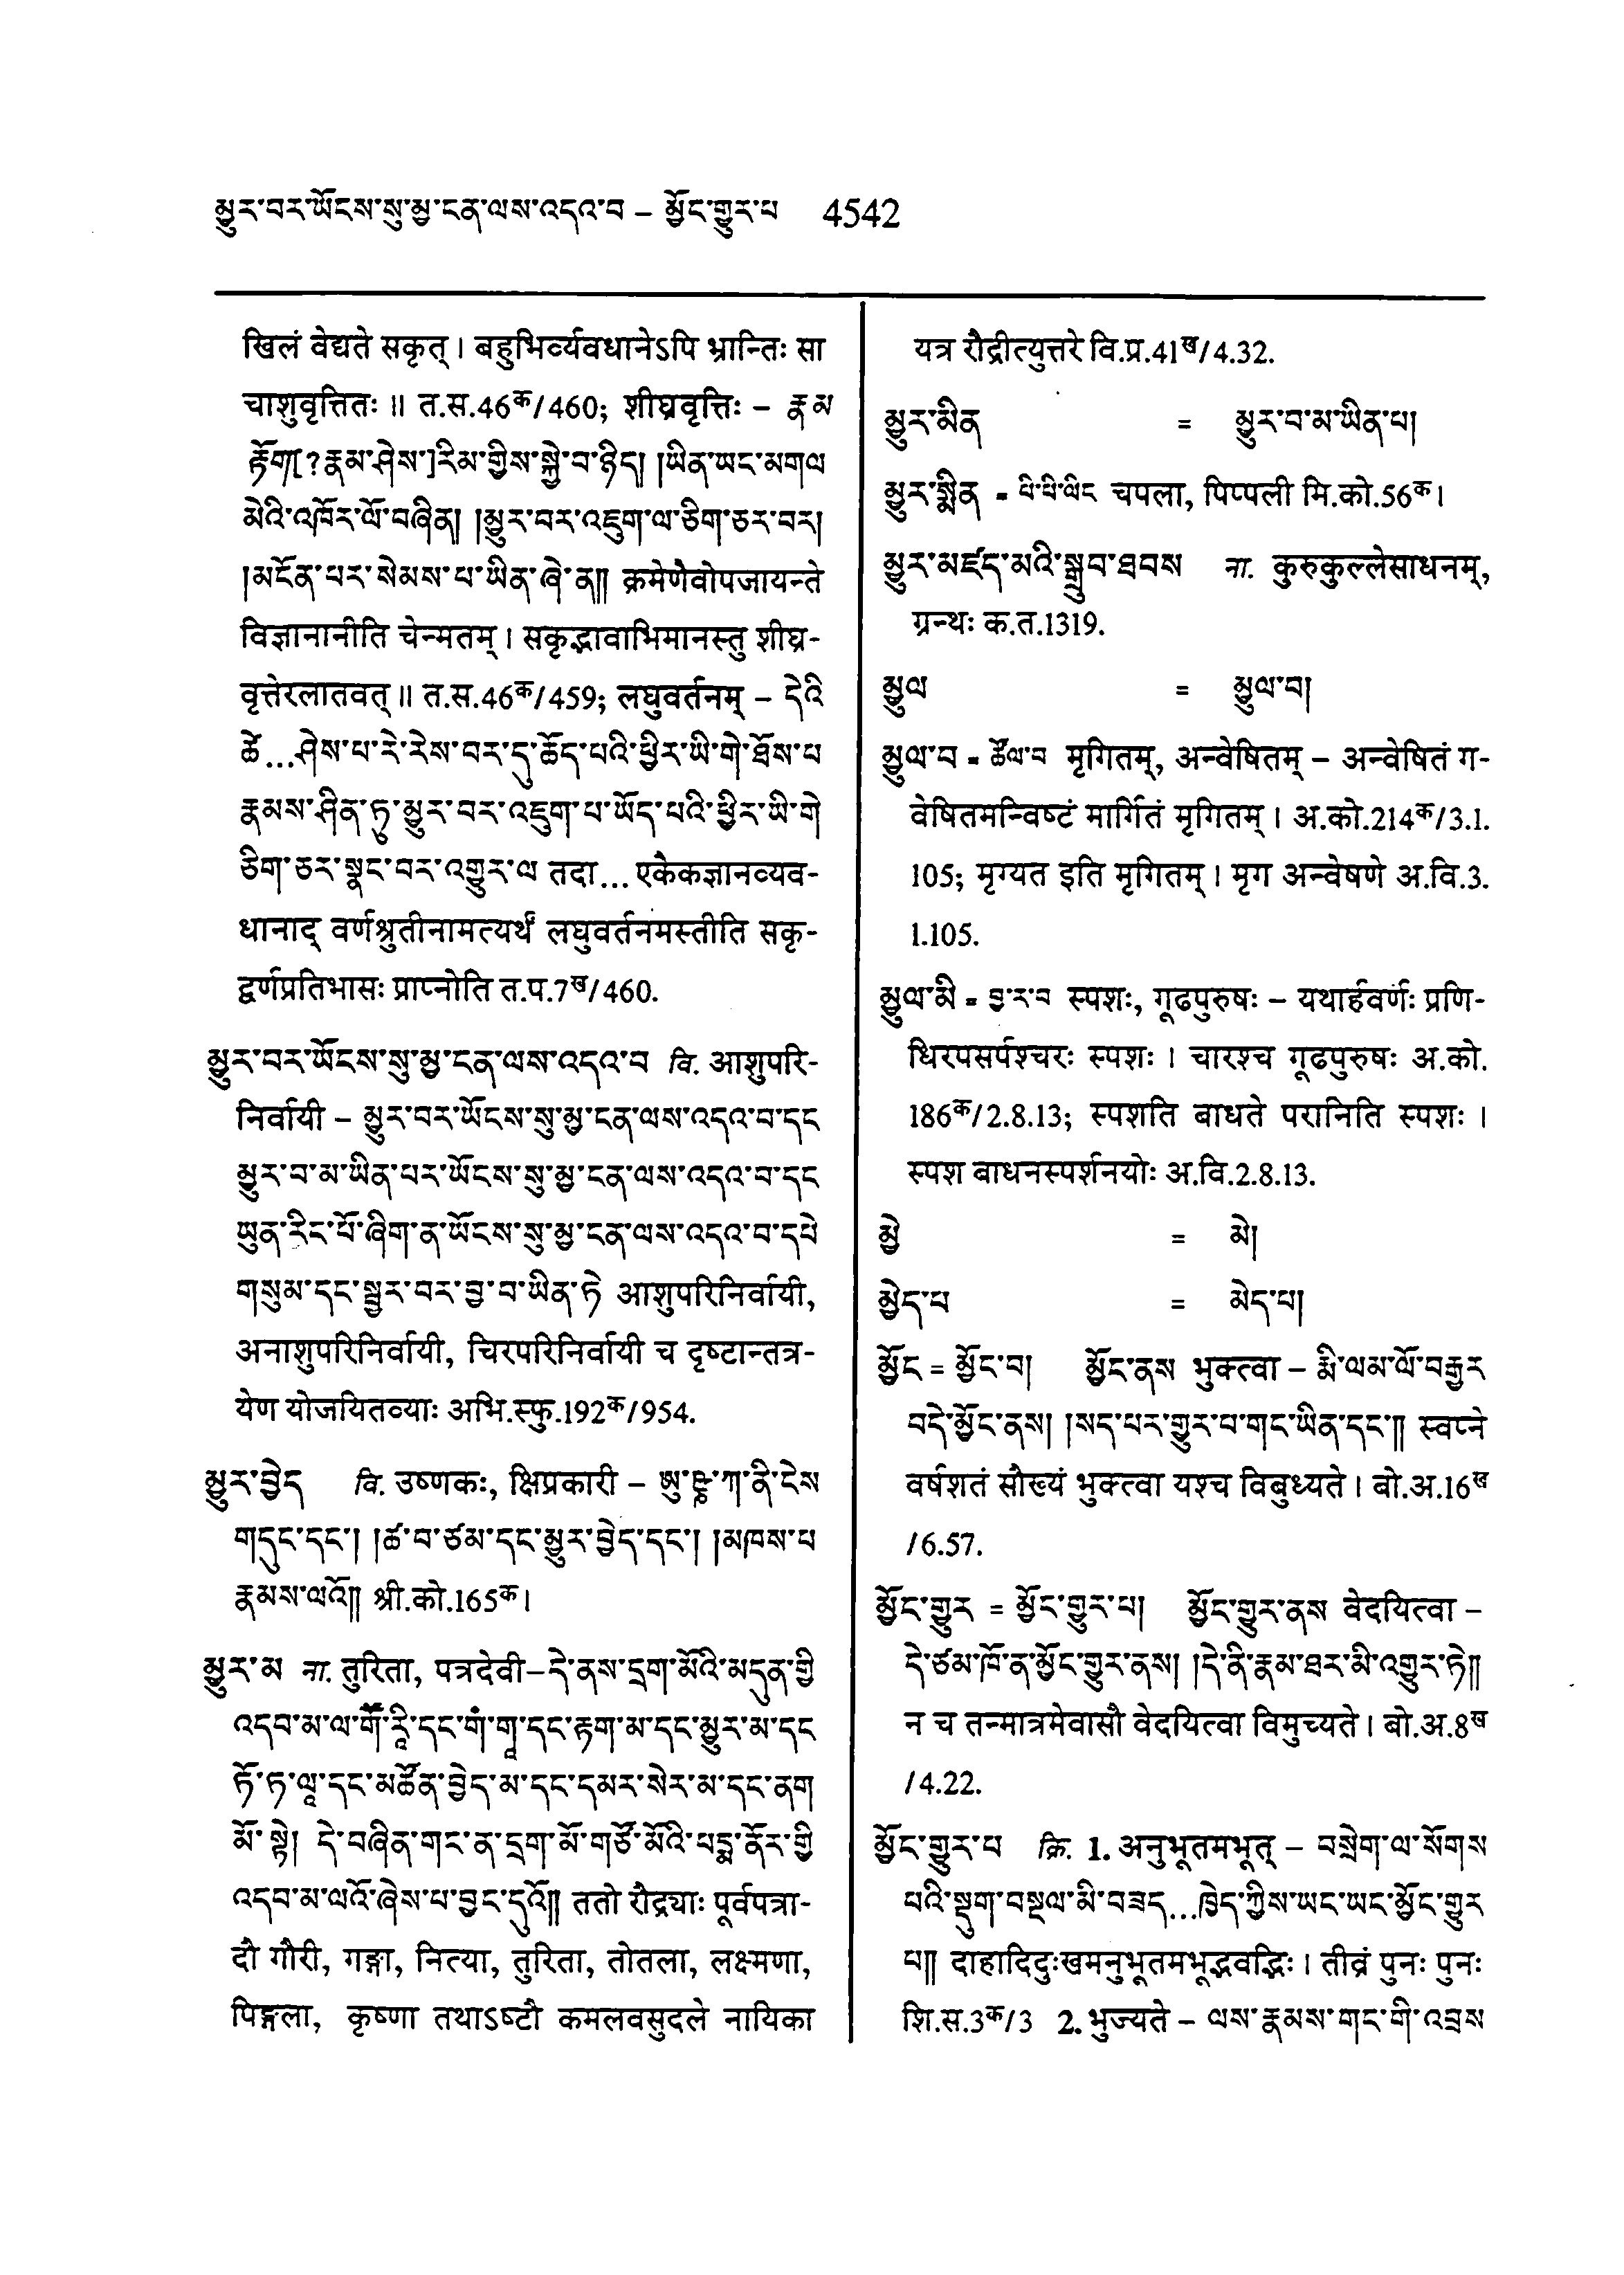 མྱུར་བར་ཡོངས་སུ་མྱ་ངན་ལས་འདའ་བ – མྱོང་གྱུར་པ 4542
खिलं वेद्यते सकृत् । बहुभिर्व्यवधानेऽपि भ्रान्तिः सा
चाशुवृत्तितः ॥ त.स.46क/460; शीघ्रवृत्तिः – རྣམ
རྟོག[?རྣམ་ཤེས་]རིམ་གྱིས་སྐྱེ་བ་ཉིད། །ཡིན་ཡང་མགལ
མེའི་འཁོར་ལོ་བཞིན། །མྱུར་བར་འཇུག་ལ་ཅིག་ཅར་བར།
།མངོན་པར་སེམས་པ་ཡིན་ཞེ་ན།། क्रमेणैवोपजायन्ते
विज्ञानानीति चेन्मतम् । सकृद्भावाभिमानस्तु शीघ्र-
वृत्तेरलातवत् ॥ त.स.46क/459; लघुवर्तनम् – དེའི
ཚེ...ཤེས་པ་རེ་རེས་བར་དུ་ཆོད་པའི་ཕྱིར་ཡི་གེ་ཐོས་པ
རྣམས་ཤིན་ཏུ་མྱུར་བར་འཇུག་པ་ཡོད་པའི་ཕྱིར་ཡི་གེ
ཅིག་ཅར་སྣང་བར་འགྱུར་ལ तदा... एकैकज्ञानव्यव-
धानाद् वर्णश्रुतीनामत्यर्थं लघुवर्तनमस्तीति सकृ-
द्वर्णप्रतिभासः प्राप्नोति त.प.7ख/460.
མྱུར་བར་ཡོངས་སུ་མྱ་ངན་ལས་འདའ་བ वि. आशुपरि-
निर्वायी – མྱུར་བར་ཡོངས་སུ་མྱ་ངན་ལས་འདའ་བ་དང
མྱུར་བ་མ་ཡིན་པར་ཡོངས་སུ་མྱ་ངན་ལས་འདའ་བ་དང
ཡུན་རིང་པོ་ཞིག་ན་ཡོངས་སུ་མྱ་ངན་ལས་འདའ་བ་དཔེ
གསུམ་དང་སྦྱར་བར་བྱ་བ་ཡིན་ཏེ आशुपरिनिर्वायी,
अनाशुपरिनिर्वायी, चिरपरिनिर्वायी च दृष्टान्तत्र-
येण योजयितव्याः अभि.स्फु.192क/954.
མྱུར་བྱེད वि. उष्णकः, क्षिप्रकारी – ཨུ་ཥྞ་ཀ་ནི་ངེས
གདུང་དང་། །ཚ་བ་ཙམ་དང་མྱུར་བྱེད་དང་། །མཁས་པ
རྣམས་ལའོ།། श्री.को.165क।
མྱུར་མ ना. तुरिता, पत्रदेवी–དེ་ནས་དྲག་མོའི་མདུན་གྱི
འདབ་མ་ལ་གཽ་རཱི་དང་གཾ་གཱ་དང་རྟག་མ་དང་མྱུར་མ་དང
ཏོ་ཏ་ལཱ་དང་མཚོན་བྱེད་མ་དང་དམར་སེར་མ་དང་ནག
མོ་སྟེ། དེ་བཞིན་གར་ན་དྲག་མོ་གཙོ་མོའི་པདྨ་ནོར་གྱི
འདབ་མ་ལའོ་ཞེས་པ་བྱང་དུའོ།། ततो रौद्र्याः पूर्वपत्रा-
दौ गौरी, गङ्गा, नित्या, तुरिता, तोतला, लक्ष्मणा,
पिङ्गला, कृष्णा तथाऽष्टौ कमलवसुदले नायिका
यत्र रौद्रीत्युत्तरे वि.प्र.41ख/4.32.
མྱུར་མིན = མྱུར་བ་མ་ཡིན་པ།
མྱུར་སྨིན = པི་པི་ལིང चपला, पिप्पली मि.को.56क।
མྱུར་མཛད་མའི་སྒྲུབ་ཐབས ना. कुरुकुल्लेसाधनम्,
ग्रन्थः क.त.1319.
མྱུལ = མྱུལ་བ།
མྱུལ་བ = ཚོལ་བ मृगितम्, अन्वेषितम् – अन्वेषितं ग-
वेषितमन्विष्टं मार्गितं मृगितम् । अ.को.214क/3.1.
105; मृग्यत इति मृगितम् । मृग अन्वेषणे अ.वि.3.
1.105.
མྱུལ་མི = བྱ་ར་བ स्पशः, गूढपुरुषः – यथार्हवर्णः प्रणि-
धिरपसर्पश्चरः स्पशः । चारश्च गूढपुरुषः अ.को.
186क/2.8.13; स्पशति बाधते परानिति स्पशः ।
स्पश बाधनस्पर्शनयोः अ.वि.2.8.13.
མྱེ = མེ།
མྱེད་པ = མེད་པ།
མྱོང = མྱོང་བ། མྱོང་ནས भुक्त्वा – རྨི་ལམ་ལོ་བརྒྱར
བདེ་མྱོང་ནས། །སད་པར་གྱུར་པ་གང་ཡིན་དང་།། स्वप्ने
वर्षशतं सौख्यं भुक्त्वा यश्च विबुध्यते । बो.अ.16ख
/6.57.
མྱོང་གྱུར = མྱོང་གྱུར་པ། མྱོང་གྱུར་ནས वेदयित्वा –
དེ་ཙམ་ཁོ་ན་མྱོང་གྱུར་ནས། །དེ་ནི་རྣམ་ཐར་མི་འགྱུར་ཏེ།།
न च तन्मात्रमेवासौ वेदयित्वा विमुच्यते । बो.अ.8ख
/4.22.
མྱོང་གྱུར་པ क्रि. 1. अनुभूतमभूत् – བསྲེག་ལ་སོགས
པའི་སྡུག་བསྔལ་མི་བཟད...ཁྱེད་ཀྱིས་ཡང་ཡང་མྱོང་གྱུར
པ།། दाहादिदुःखमनुभूतमभूद्भवद्भिः । तीव्रं पुनः पुनः
शि.स.3क/3 2. भुज्यते – ལས་རྣམས་གང་གི་འབྲས